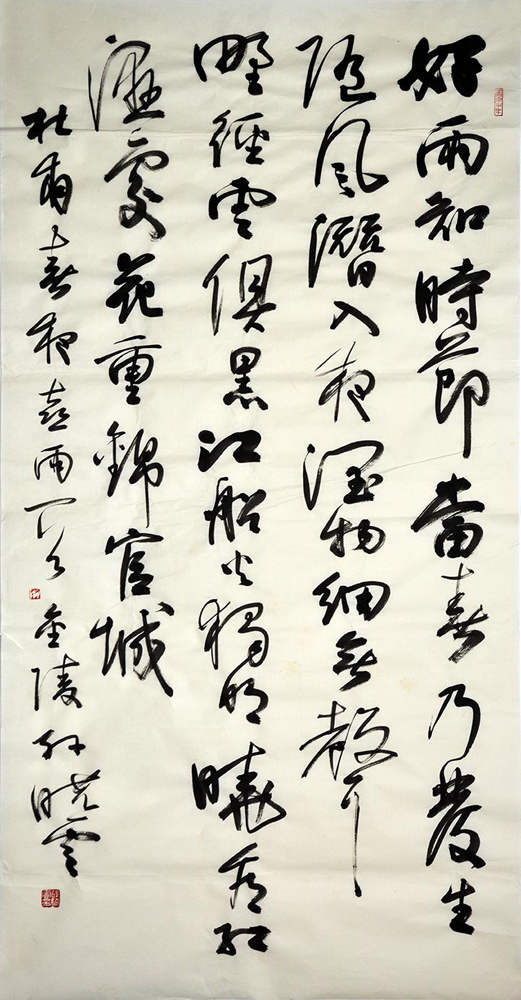 好雨知時節當春乃發生
隨風潛入夜潤物細無聲
野徑雲俱黑江船火獨明曉看紅
濕處花重錦官城
杜甫春夜喜雨 金陵孫曉雲